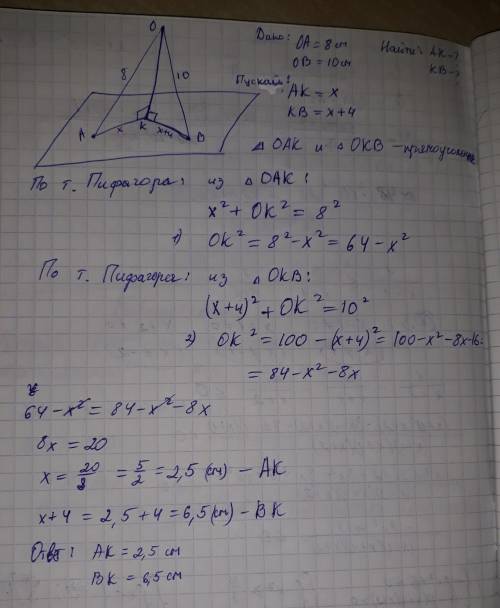 Дано: OA = 8 см
OB = 10 см
Найти: AK - ?
KB - ?
O
8
10
A
x
K
x+4
B
Пускай:
AK = x
KB = x+4
△ OAK и △ OKB - прямоугольные
По т. Пифагора: из △ OAK:
x² + OK² = 8²
1) OK² = 8² - x² = 64 - x²
По т. Пифагора: из △ OKB:
(x+4)² + OK² = 10²
2) OK² = 100 - (x+4)² = 100 - x² - 8x - 16 =
= 84 - x² - 8x
64 - x² = 84 - x² - 8x
8x = 20
x = 20/8 = 5/2 = 2,5 (см) - AK
x+4 = 2,5 + 4 = 6,5 (см) - BK
Ответ: AK = 2,5 см
BK = 6,5 см